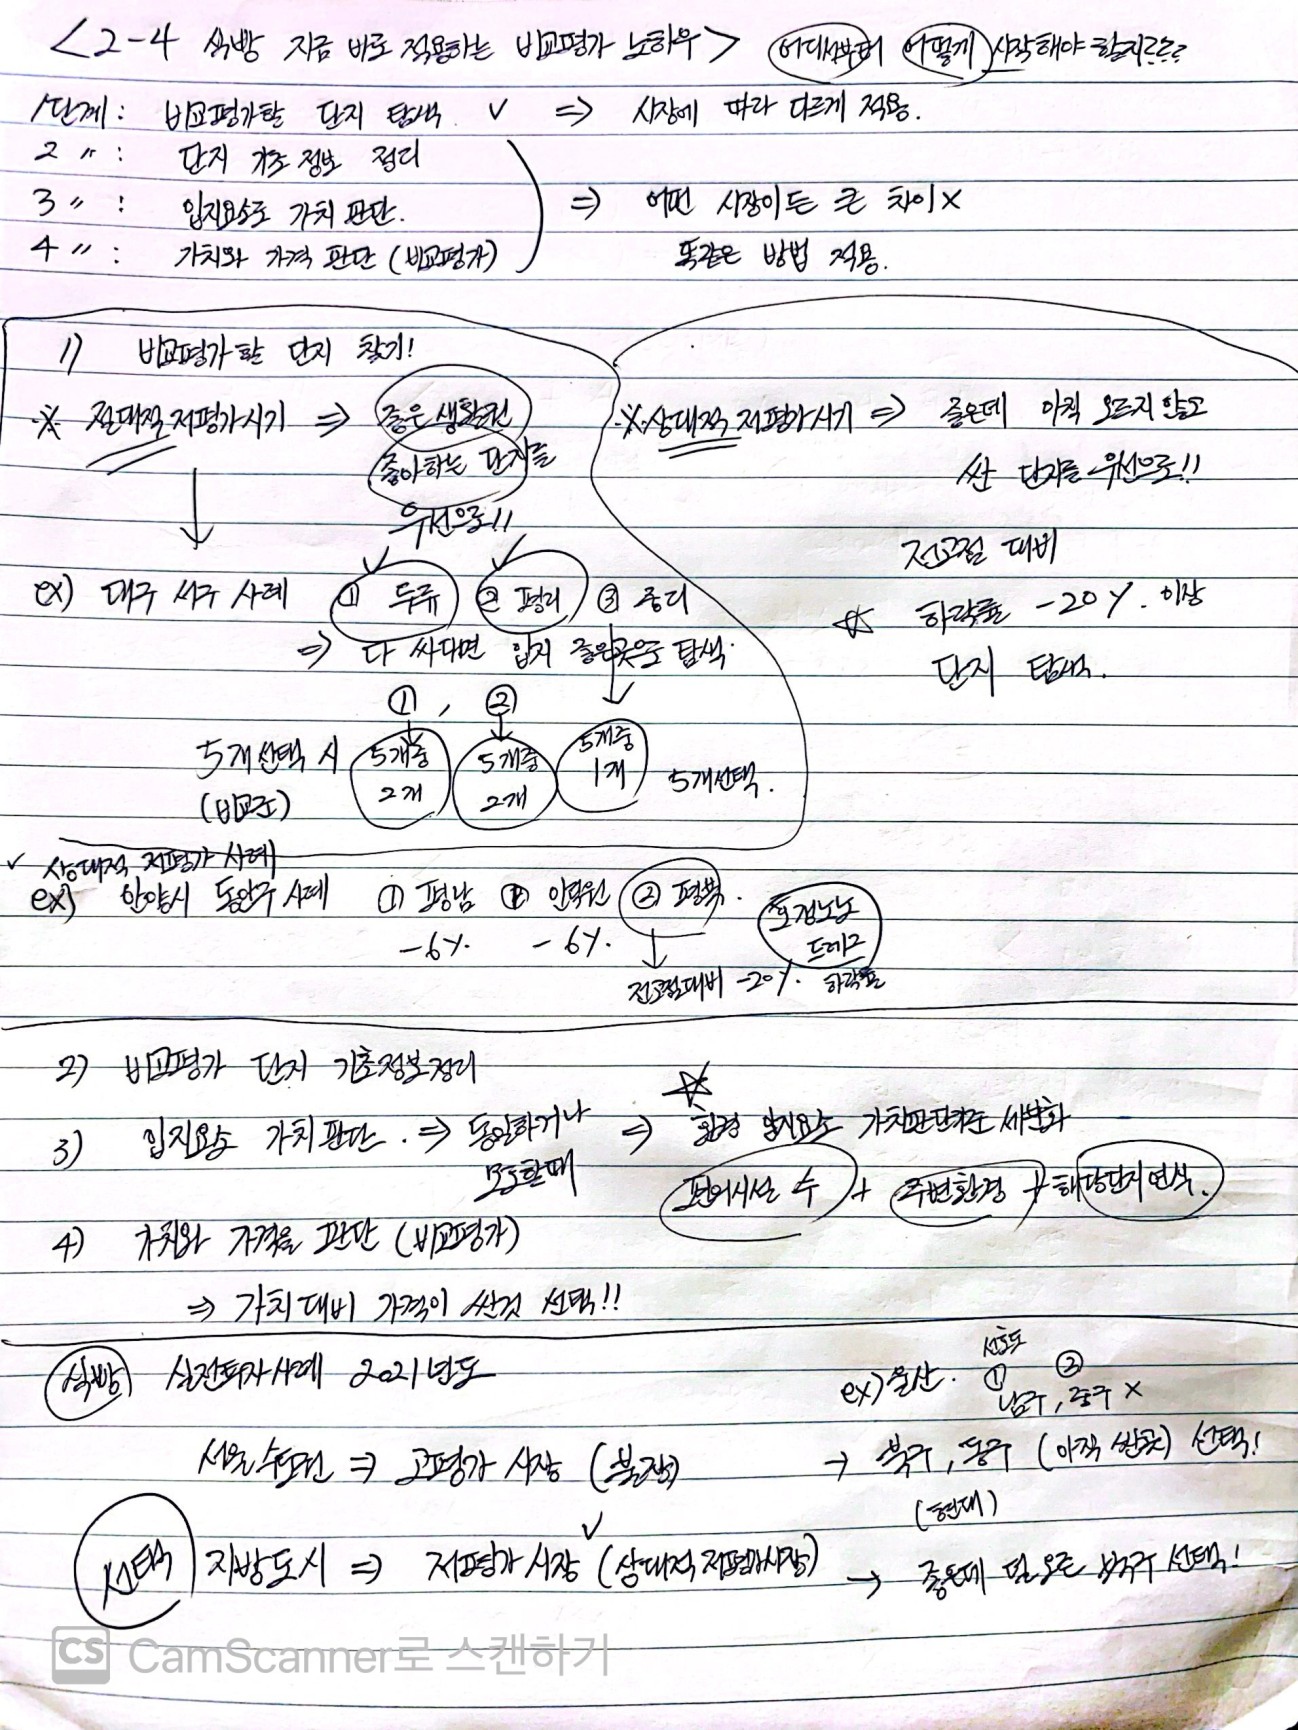 <2-4 식빵 지금 바로 적용하는 비교평가 노하우> 어디서부터 어떻게 시작해야 할지ㄹㄹㄹ
1단계: 비교평가할 단지 탐색 ✓ ⇒ 시장에 따라 다르게 적용.
2 〃 : 단지 기초 정보 정리
3 〃 : 입지요소로 가치 판단. ⇒ 어떤 시장이든 큰 차이 X
4 〃 : 가치와 가격 판단 (비교평가) 똑같은 방법 적용.
1) 비교평가 할 단지 찾기!
※ 절대적 저평가시기 ⇒ 좋은 생활권
좋아하는 단지를
우선으로!!
※ 상대적 저평가시기 ⇒ 좋은데 아직 오르지 않고
싼 단지를 우선으로!!
전고점 대비
☆ 하락률 -20%. 이상
단지 탐색.
ex) 대구 서구 사례 ① 두류 ② 평리 ③ 중리
⇒ 다 싸다면 입지 좋은곳으로 탐색.
①, ②
5개 선택 시 5개중 5개중 5개중 5개선택.
(비교군) 2개 2개 1개
✓ 상대적 저평가 사례
ex) 안양시 동안구 사례 ① 평남 ② 인덕원 ② 평북.
-6%. -6%.
전고점대비 -20%. 하락률
드레그
2) 비교평가 단지 기초정보정리
3) 입지요소 가치 판단. ⇒ 동일하거나 ⇒ ☆ 환경 입지요소 가치판단기준 세분화
모호할때 편의시설 수 + 주변환경 + 해당단지 연식.
4) 가치와 가격을 판단 (비교평가)
⇒ 가치 대비 가격이 싼것 선택!!
식빵 실전투자사례 2021년도
ex) 울산. 선호도 ① ②
남구, 중구 X
서울 수도권 ⇒ 고평가 시장 (불장)
→ 북구, 동구 (아직 싼곳) 선택!
(현대)
선택 지방도시 ⇒ 저평가 시장 (상대적 저평가시장) ✓
→ 좋은데 덜 오른 북구 선택!
CS CamScanner로 스캔하기